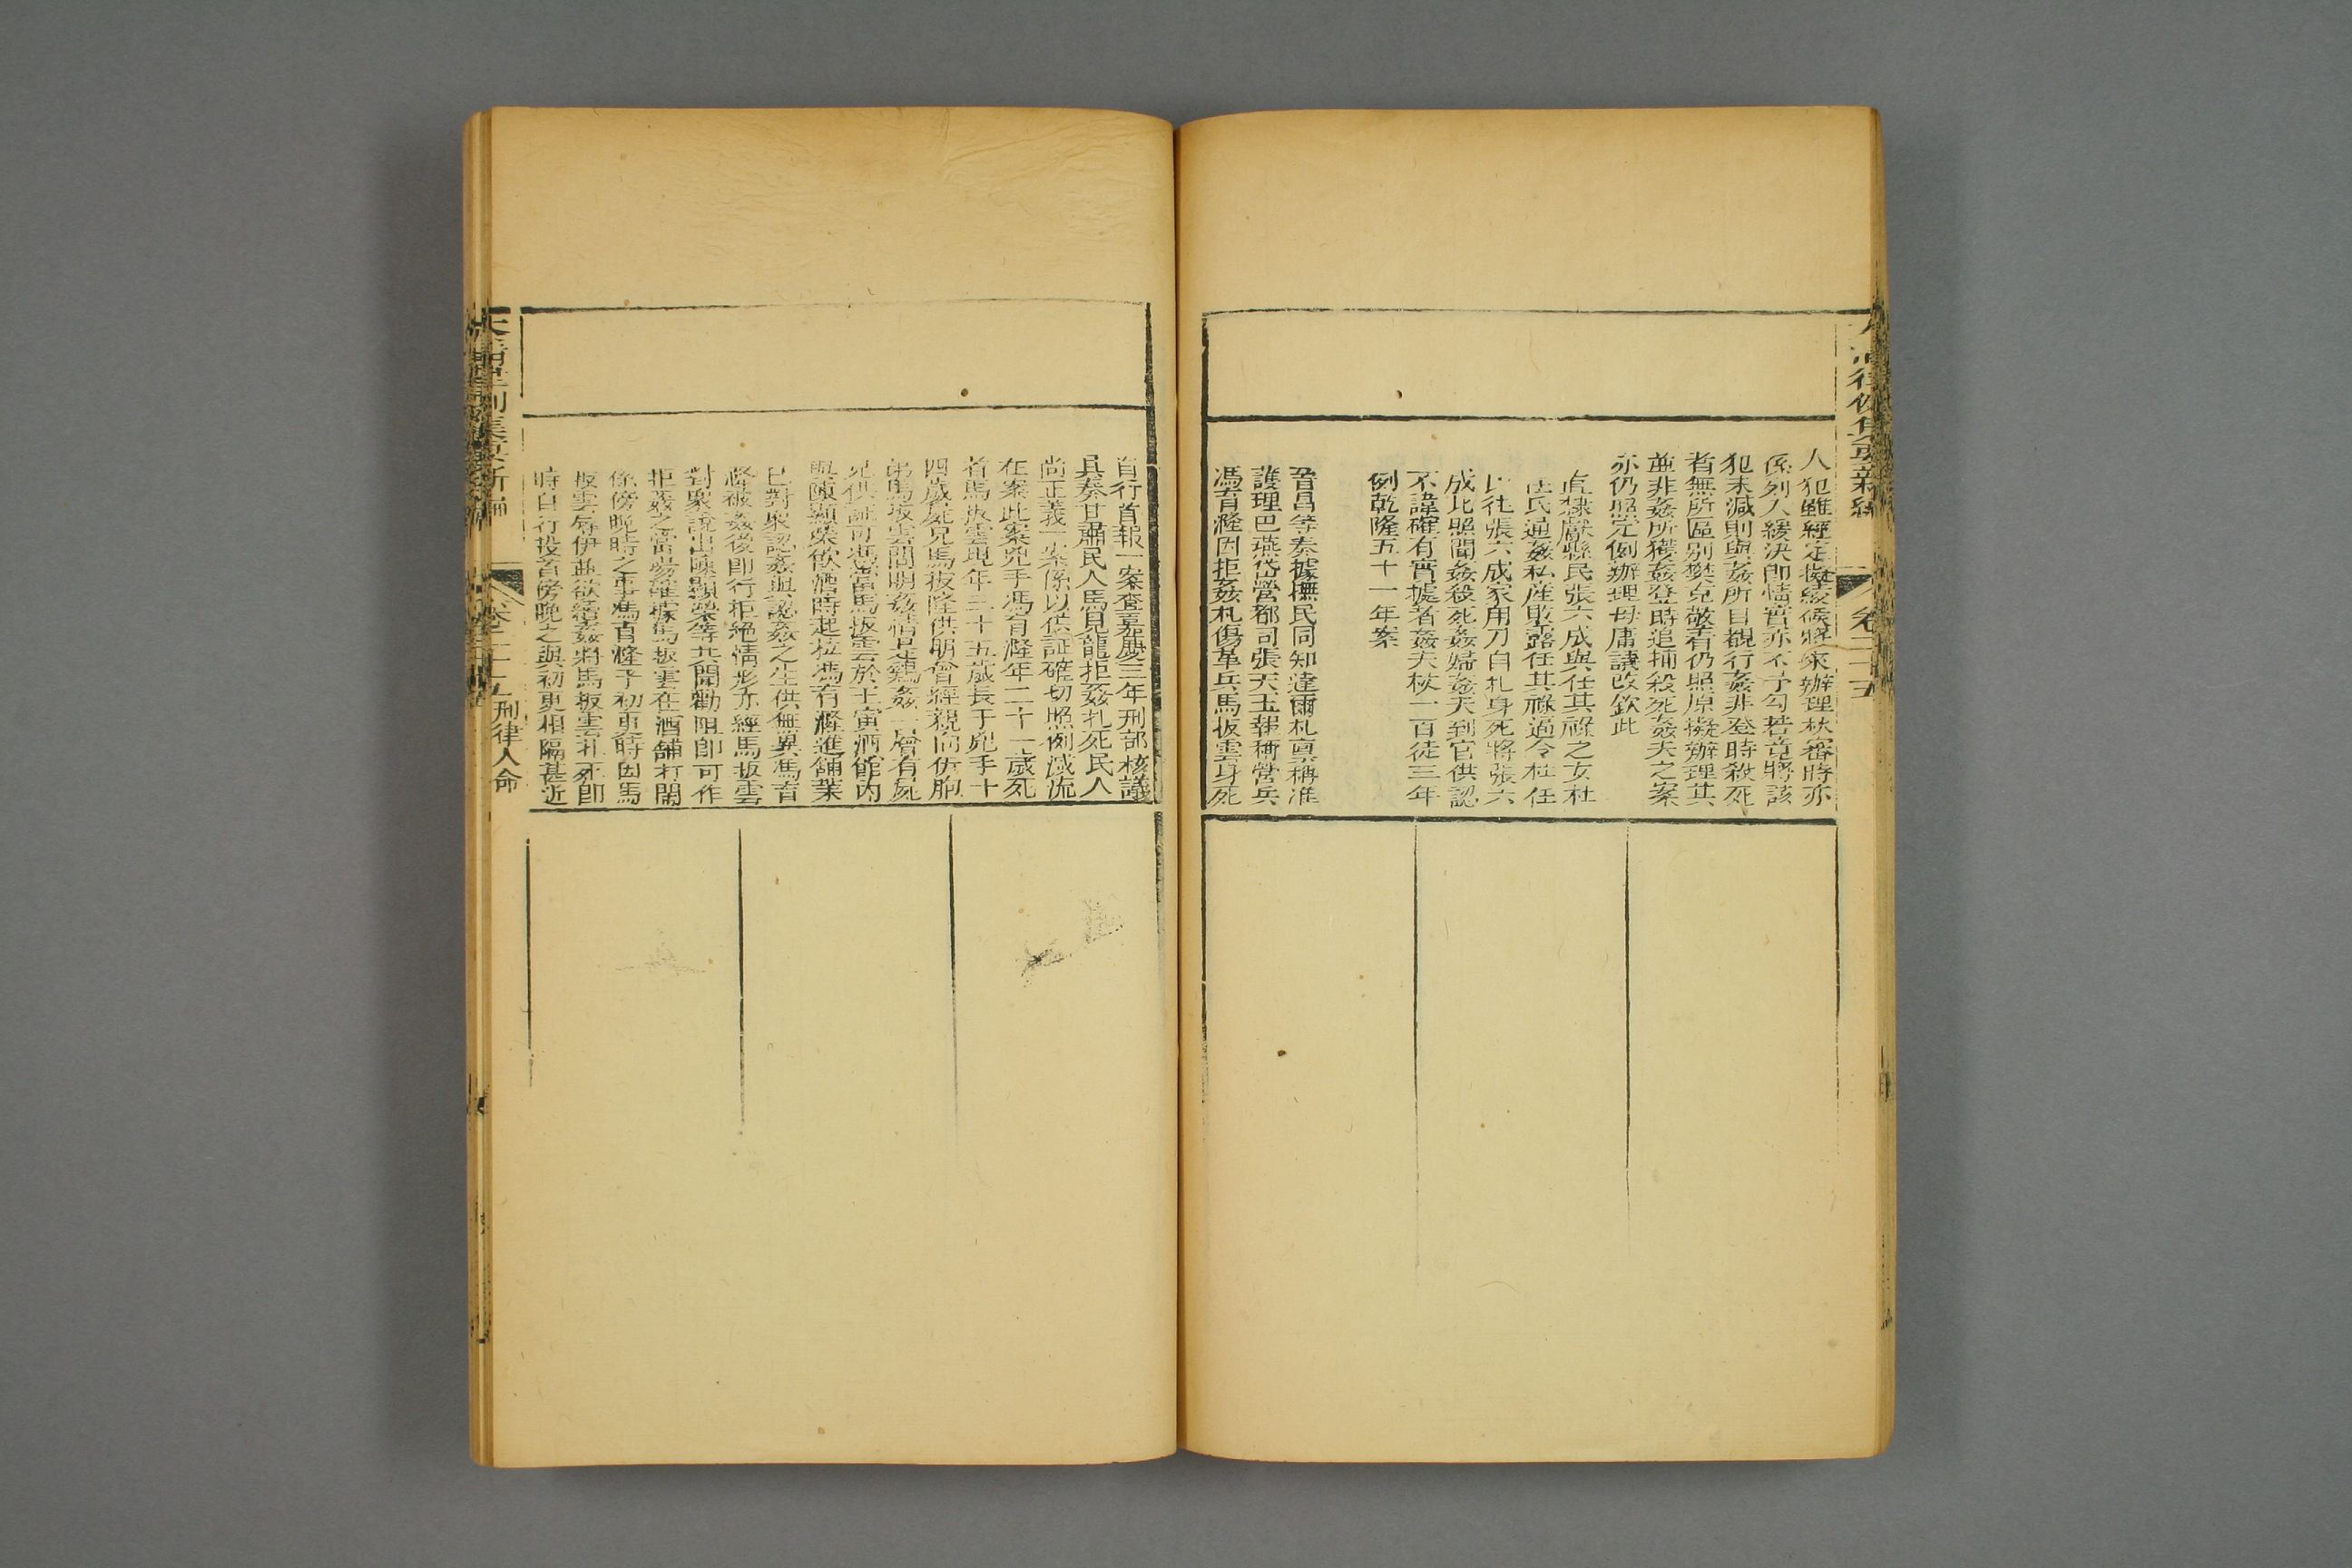 大清律例集要新編 卷二十五
人犯雖經定擬絞候將來辦理秋審時亦
係列入緩決即情實亦不予勾若竟將該
犯末減則與姦所目覩行姦非登時殺死
者無所區別樊克敬著仍照原擬辦理其
並非姦所獲姦登時追捕殺死姦夫之案
亦仍照定例辦理毋庸議改欽此
直隸獻縣民張六成與任其祿之女杜
任氏通姦私產敗露任其祿逼令杜任
氏往張六成家用刀自扎身死將張六
成比照聞姦殺死姦婦姦夫到官供認
不諱確有實據者姦夫杖一百徒三年
例乾隆五十一年案
晉昌等奏據撫民同知達爾札真稱准
護理巴燕岱營都司張天玉報稱營兵
馮有瀧因拒姦札傷革兵馬扳雲身死
自行首報一案查嘉慶三年刑部核議
具奏甘肅民人馬見龍拒姦扎死民人
尚正義一案係以供証確切照例減流
在案此案兇手馮有瀧年二十一歲死
者馬扳雲現年三十五歲長于兇手十
四歲屍兄馬扳隆供明曾經親向伊胞
弟馬扳雲問明姦情是雞姦一層有屍
兄供証可憑當馬扳雲於王寅酒館內
與陳顯榮飲酒時起拉馮有瀧進舖業
已對衆認姦與認姦之生供無異馮有
瀧被姦後即行拒絕情形亦經馬扳雲
對衆說出陳顯榮等共聞勸阻即可作
拒姦之當場確據馬扳雲在酒舖打鬧
係傍晚時之事馮有瀧于初更時因馬
扳雲辱伊並欲續姦將馬扳雲扎死即
時自行投首傍晚之與初更相隔甚近
大清律例集要新編 卷二十五 刑律人命